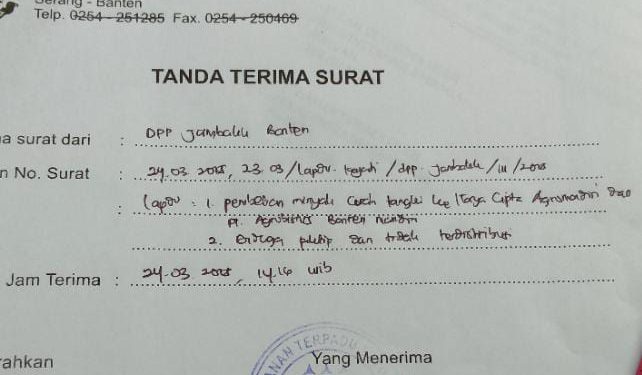 Serang - Banten
Telp. 0254 - 251285 Fax. 0254 - 250469
TANDA TERIMA SURAT
a surat dari : DPP Jambakk Banten
n No. Surat : 24.03 2025, 23.03/Lapor. Kejati/dpp. Jambakk/III/2025
: Lapor : 1. pembelian minyak Curah tangki ke Karya Cipta Agromandiri Dan
PT. Agrobisnis Banten Mandiri
2. Diduga dan tidak terdistribusi
Jam Terima : 24.03 2025, 14.16 wib
rahkan
Yang Menerima
ANAN TERPADU